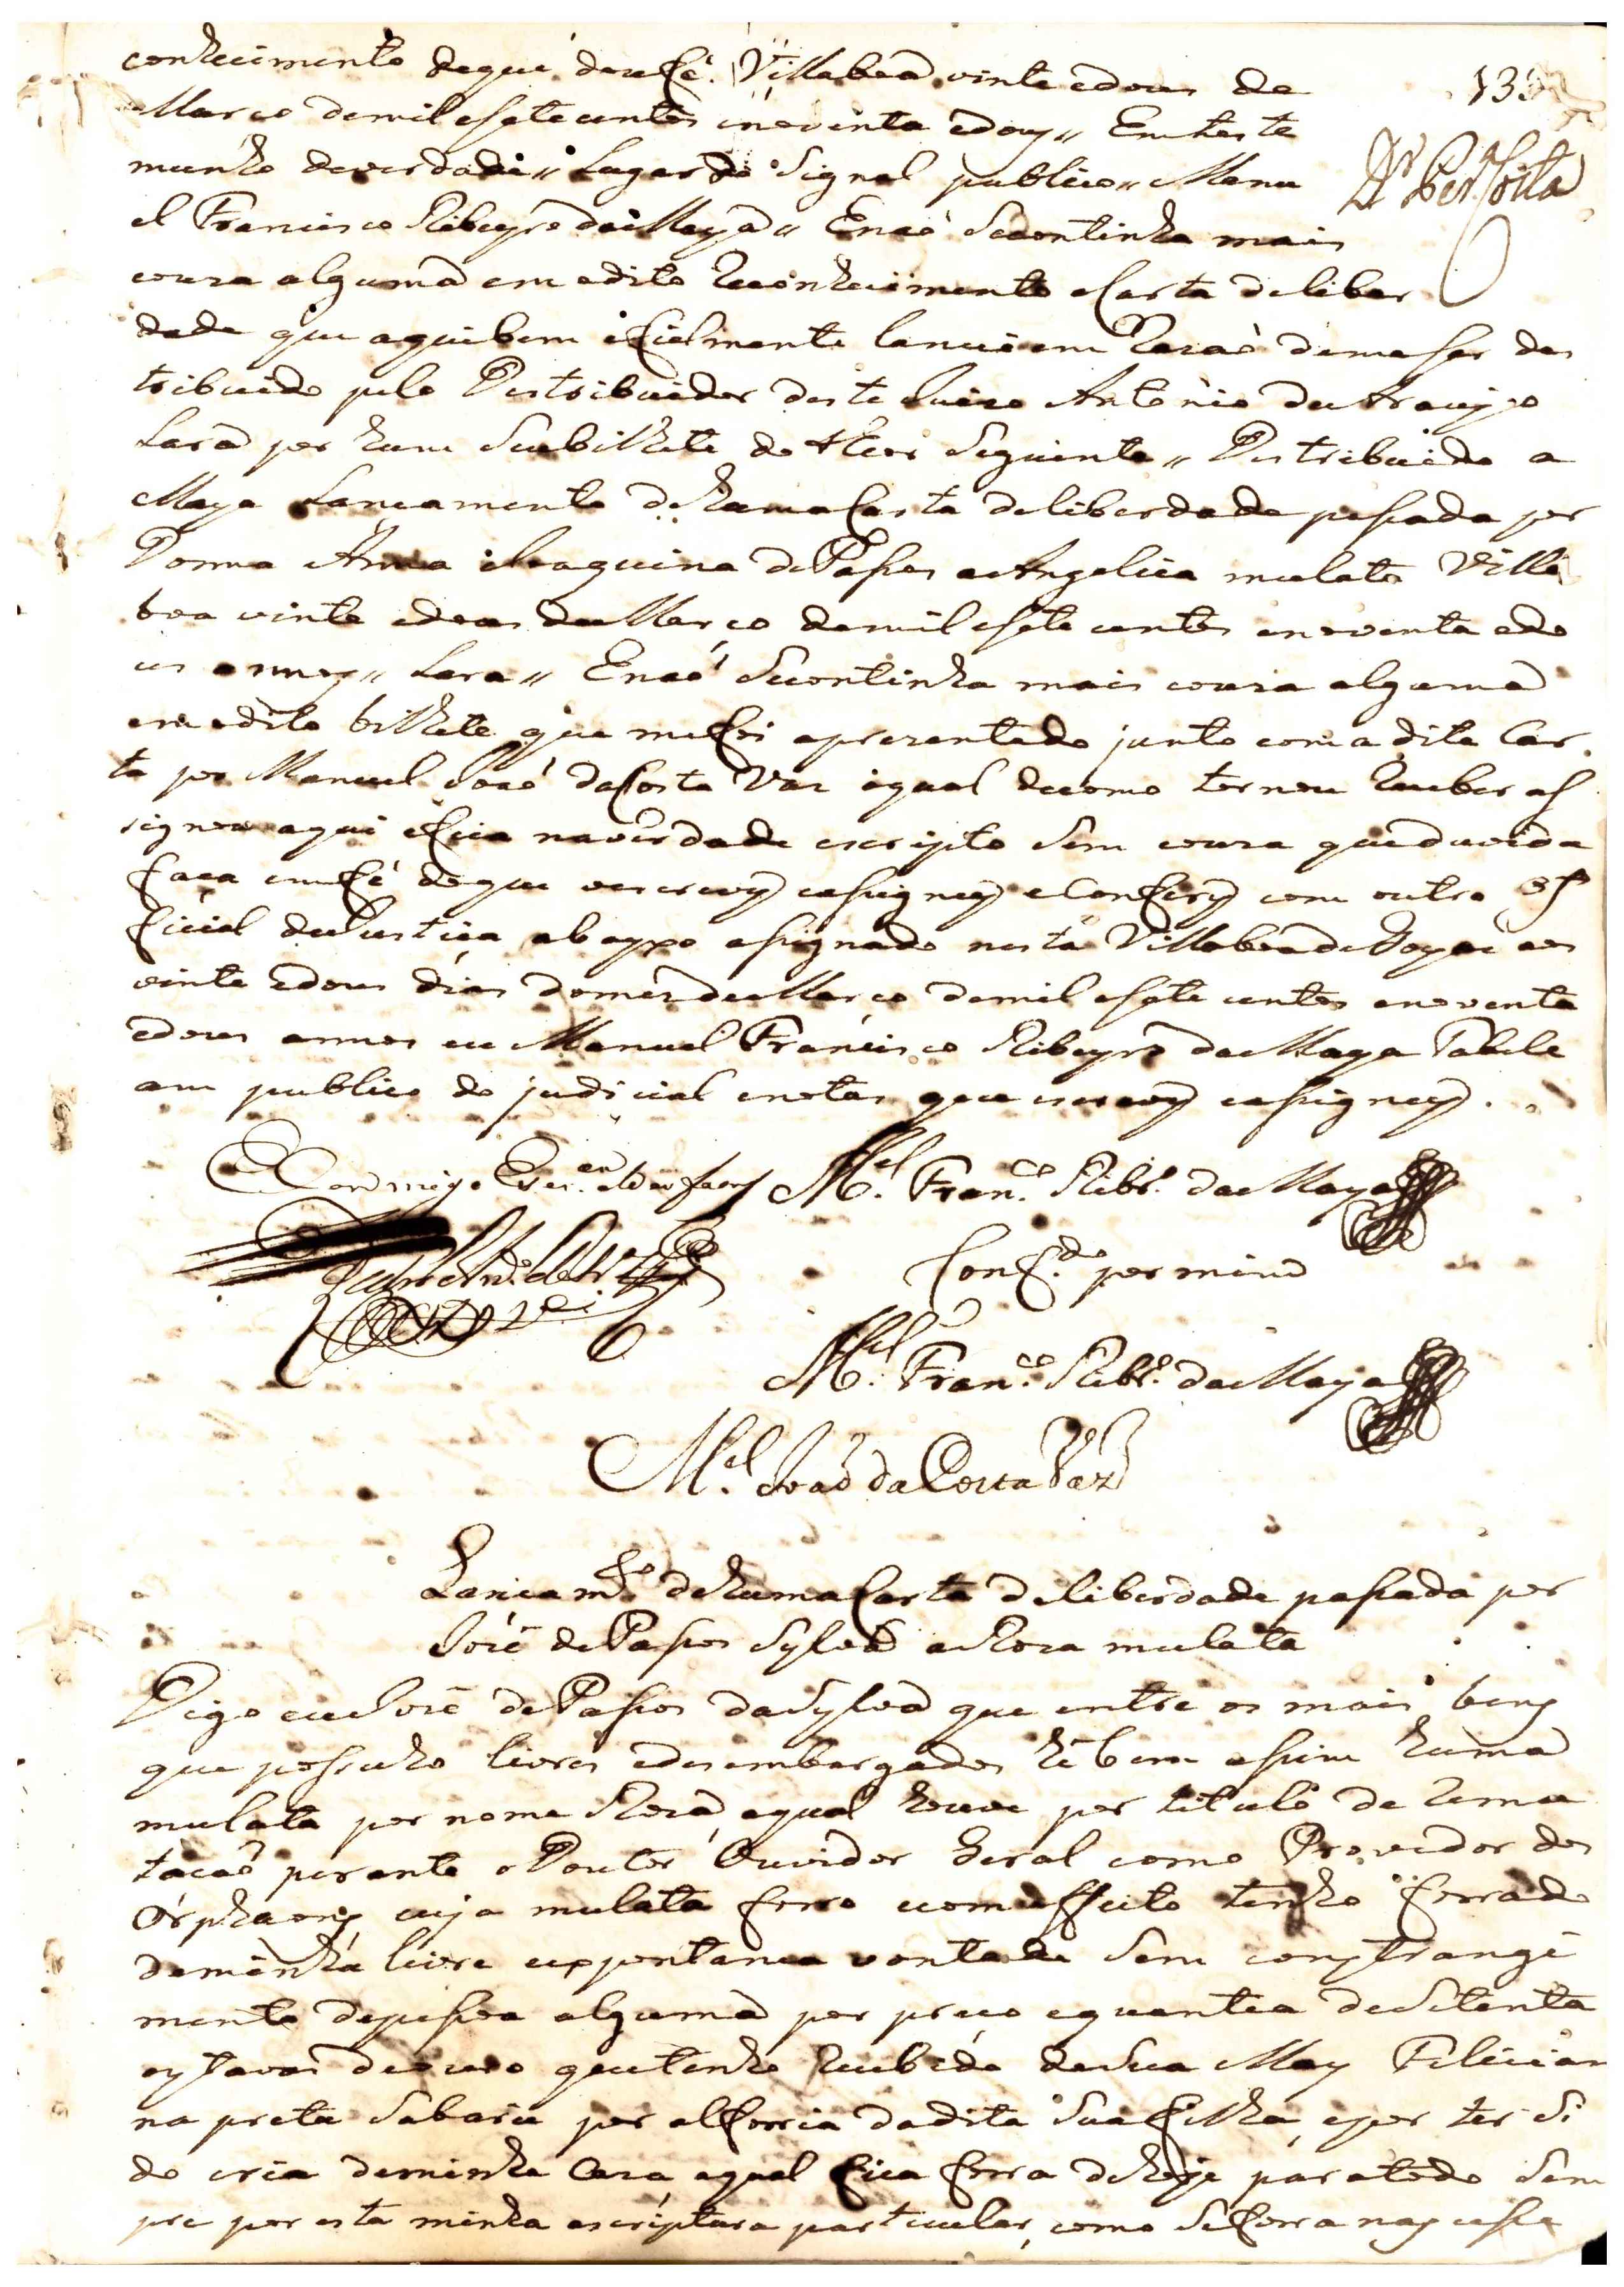 conhecimento deque doufé. Villaboa vinte edous de
Março demil esete centos enoventa edous,, Emteste
munho deverdade,, Lugar do Signal publico,, Manu
el Francisco Ribeyro da Maya,, Enaó Secontinha mais
couza alguma em odito Reconhecimento eCarta deliber
dade que aquibem efielmente lancei em Razaó demeser des
tribuido pelo Destribuidor deste Juizo Antonio de Araujo
Lara por hum Seubilhete do theor Seguinte,, Destribuida a
Maya Lancamento dehuma Carta deliberdade pasada por
Donna Anna Joaquina dePasos a Angelica mulata Villa
boa vinte edous de Março demil esete centos enoventa edo
us annos,, Lara,, Enaó Secontinha mais couza alguma
em odito bilhete que mefoi aprezentado junto com a dita Car
ta por Manuel Joaó daCosta Vaz oqual decomo tornou Receber as
signou aqui efica naverdade escripto Sem couza queduvida
faca emfé deque oescrevy easigney eConfery com outro of
ficial deJustiça abayxo asignado nesta Villaboa de Goyaz aos
vinte edous dias domez de Março demil esete centos enoventa
edous annos eu Manuel Francisco Ribeyro da Maya Tabele
am publico do judicial enotas que escrevy easigney.
M.el Fran.co Ribr.o da Maya
Conf.do por mim
M.el Fran.co Ribr.o da Maya
M.el Joaó da Costa Vaz
Lancam.to dehuma Carta deliberdade pasada por
Jozé dePasos Sylva a Roza mulata
Digo eu Jozé dePasos da Sylva que entre os mais bens
que posuho livres edesembargados hé bem asim huma
mulata por nome Roza, aqual houve por titulo de Rema
tacaó perante o Doutor Ouvidor Geral como Provedor dos
Orphaons, cuja mulata forro ecom effeito tenho forrado
deminha livre eespontanea vontade Sem constrange
mento depesoa alguma por preco equantia deSetenta
oytavas deouro quetenho Recebido deSua May Felician
na preta Sabaru por alforria dadita Sua filha, epor ter Si
do cria deminha Caza aqual fica forra dehoje paratodo Sem
pre por esta minha escriptura particular, como Seforra nascese